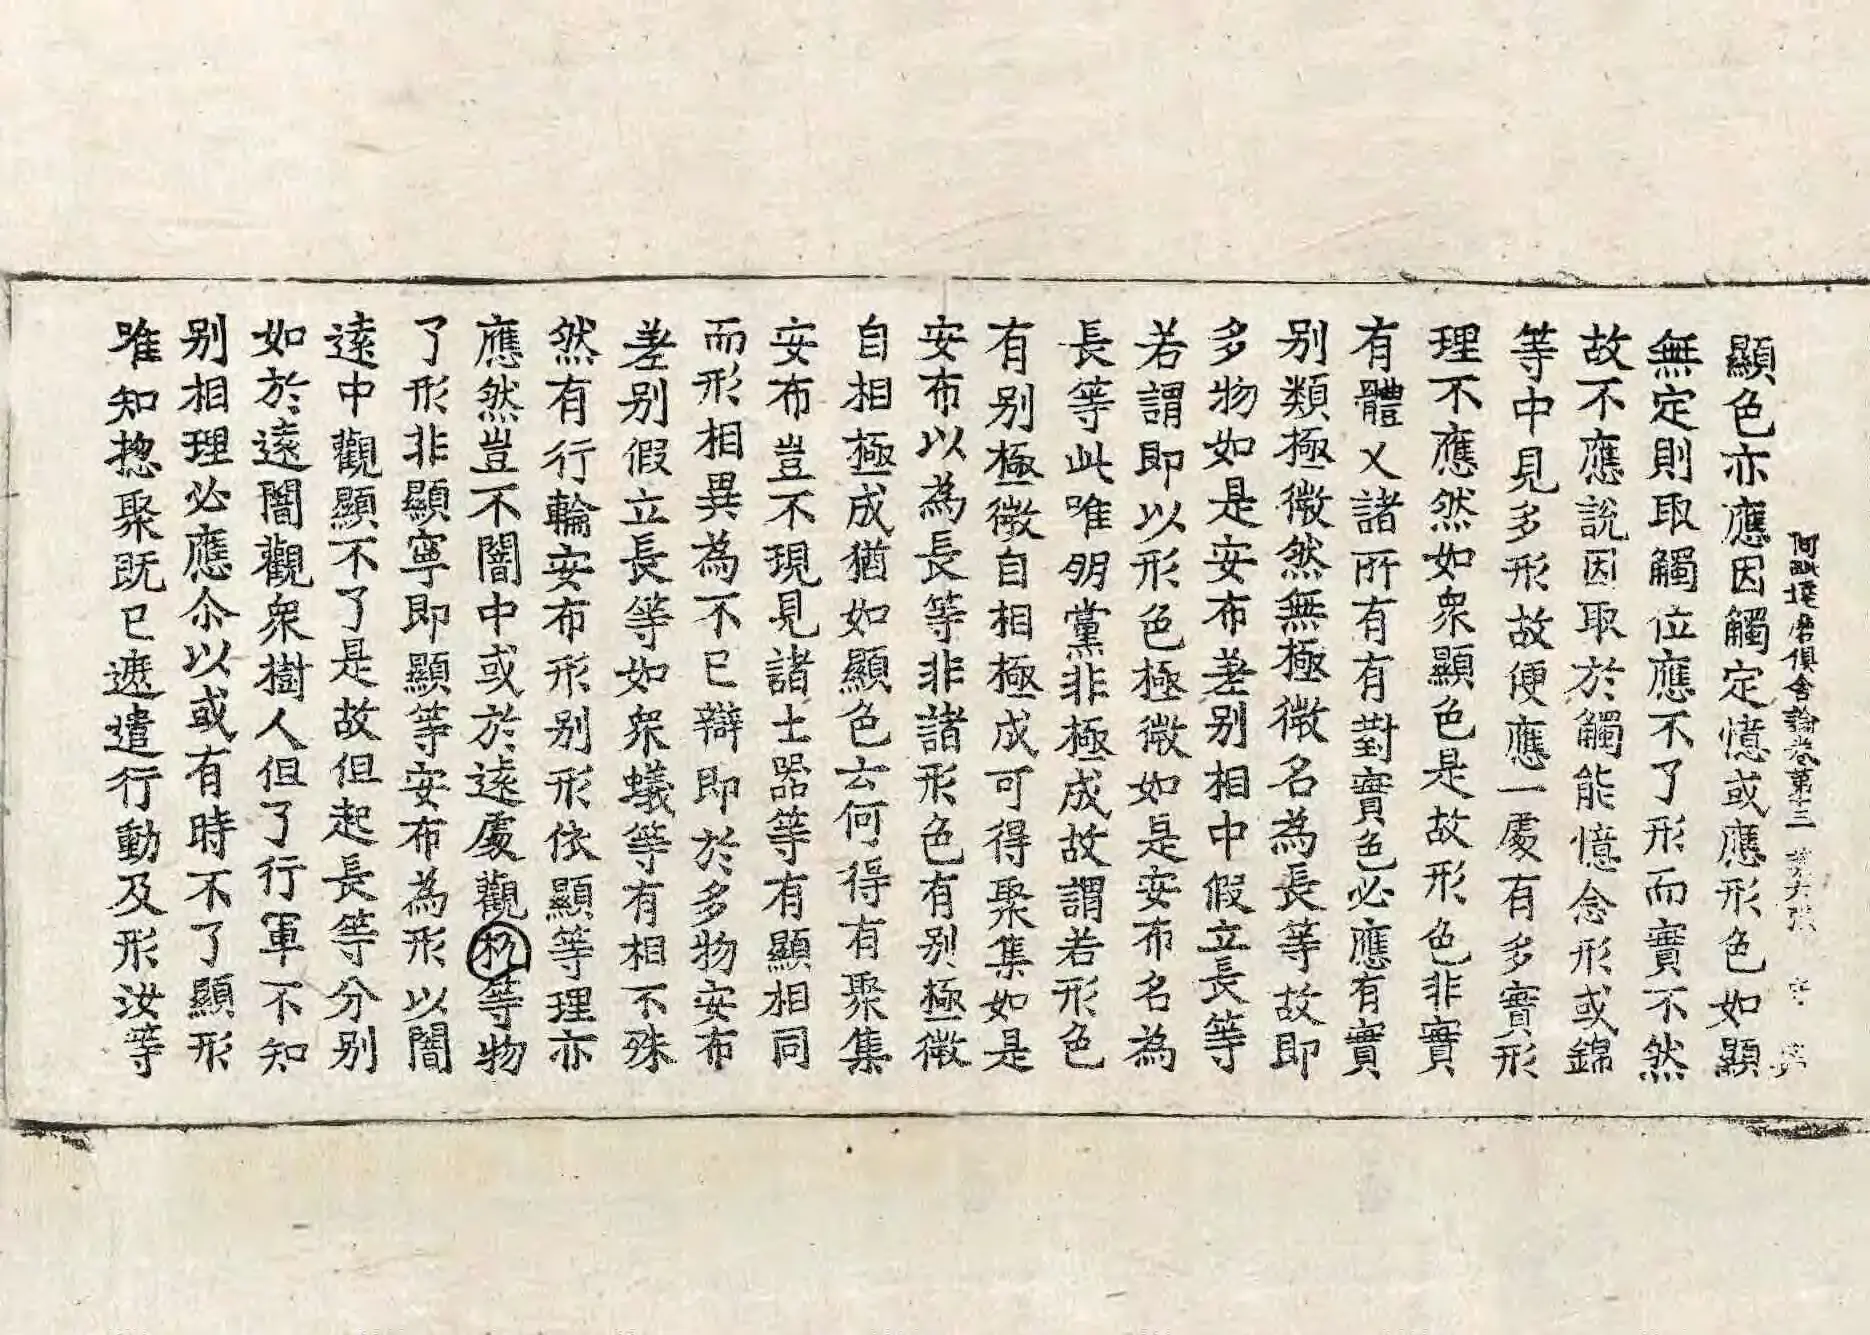 阿毗達磨俱舍論卷第十三 第六張
顯色亦應因觸定憶或應形色如顯
無定則取觸位應不了形而實不然
故不應說因取於觸能憶念形或錦
等中見多形故便應一處有多實形
理不應然如衆顯色是故形色非實
有體又諸所有有對實色必應有實
别類極微然無極微名為長等故即
多物如是安布差别相中假立長等
若謂即以形色極微如是安布名為
長等此唯明黨非極成故謂若形色
有别極微自相極成可得聚集如是
安布以為長等非諸形色有别極微
自相極成猶如顯色云何得有聚集
安布豈不現見諸土器等有顯相同
而形相異為不已辯即於多物安布
差别假立長等如衆蟻等有相不殊
然有行輪安布形别形依顯等理亦
應然豈不闇中或於遠處觀杌等物
了形非顯寧即顯等安布為形以闇
遠中觀顯不了是故但起長等分别
如於遠闇觀衆樹人但了行軍不知
别相理必應尒以或有時不了顯形
唯知揔聚既已遮遣行動及形汝等